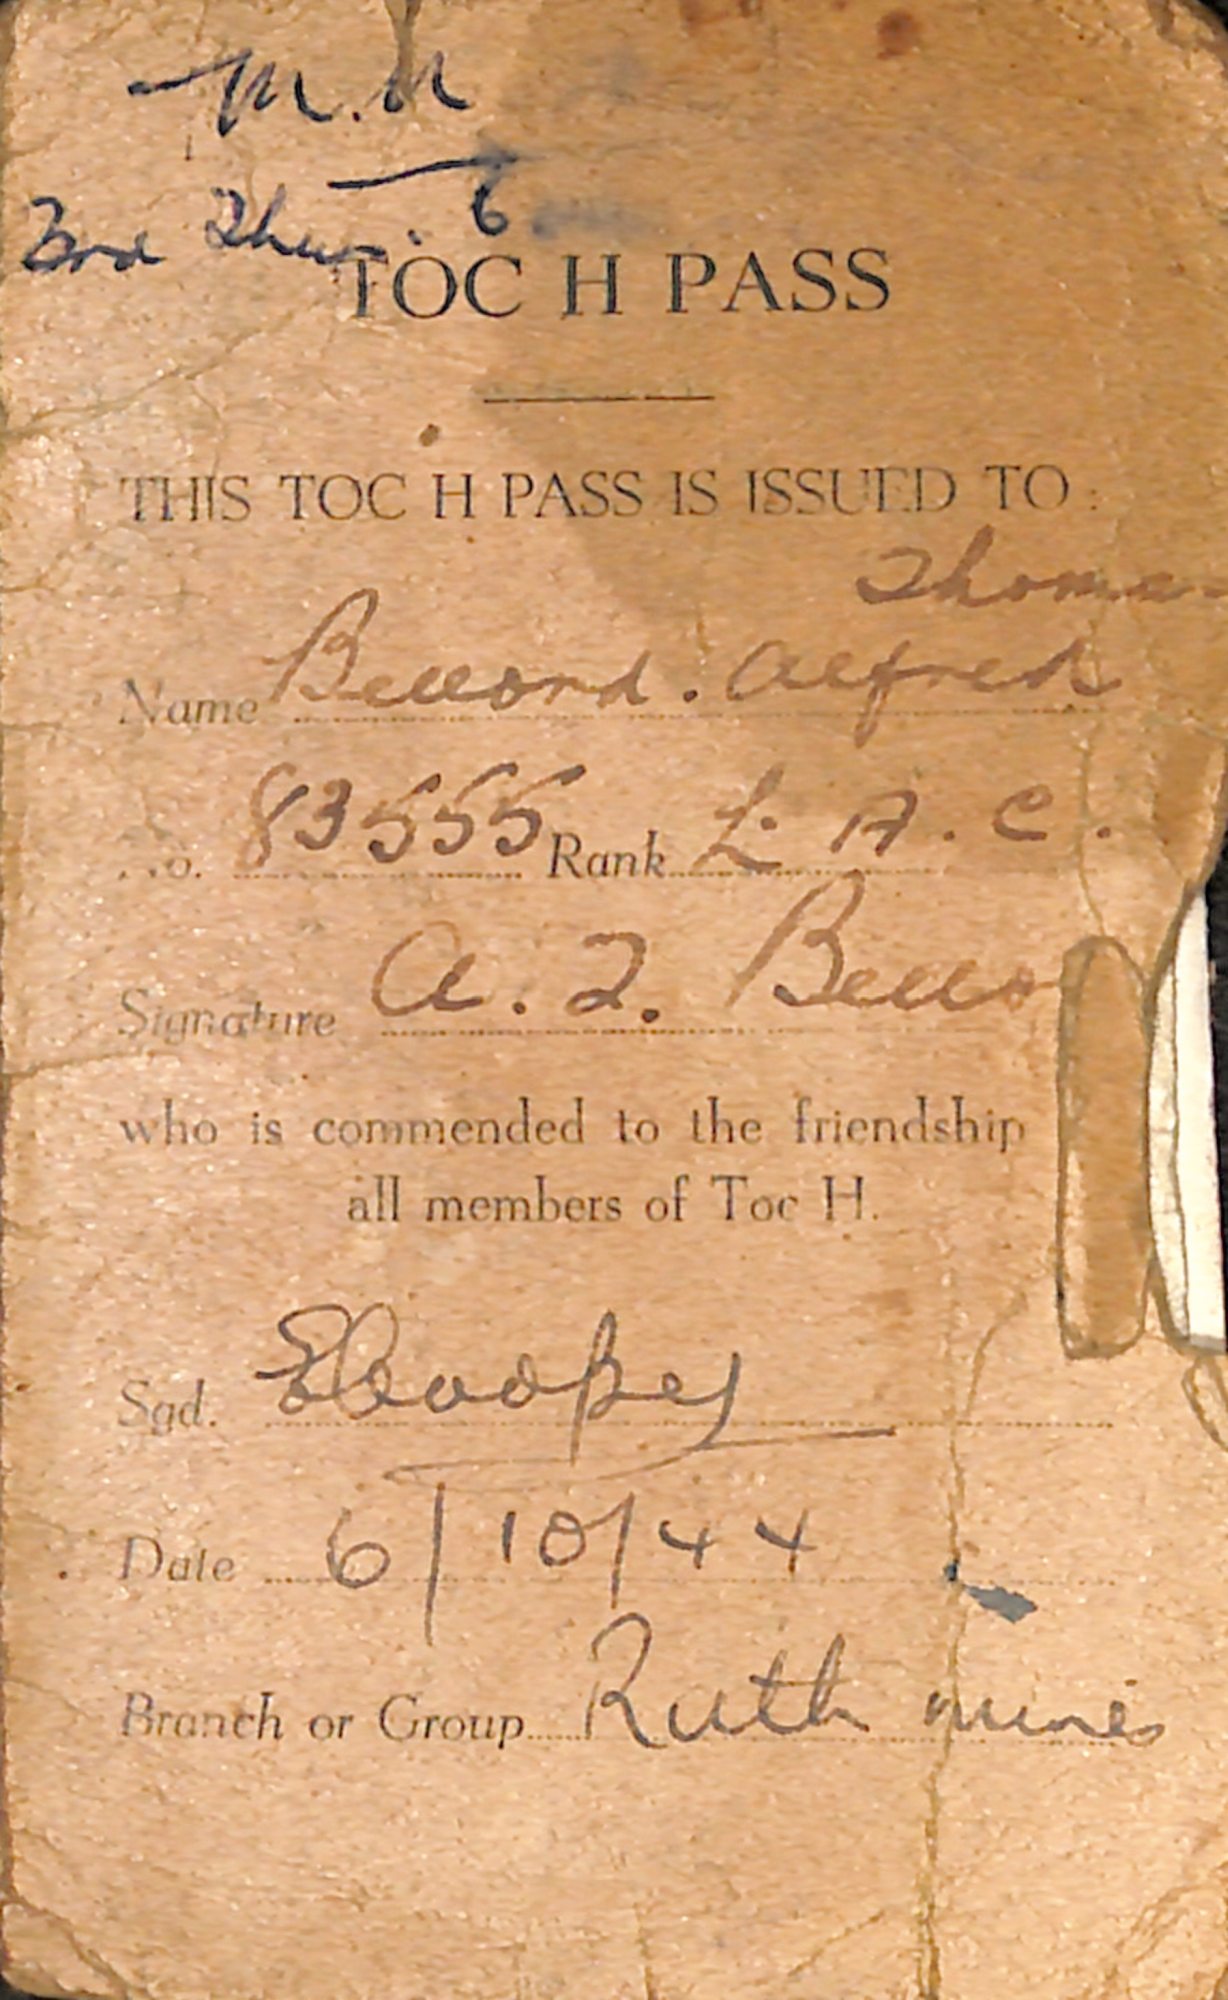 M.M
6
TOC H PASS
THIS TOC H PASS IS ISSUED TO:
Thomas
Name Bellord. Alfred
No. 83555 Rank L. A. C.
Signature A. T. Bello
who is commended to the friendship
all members of Toc H.
Sgd. E Cooper
Date 6/10/44
Branch or Group Ruth